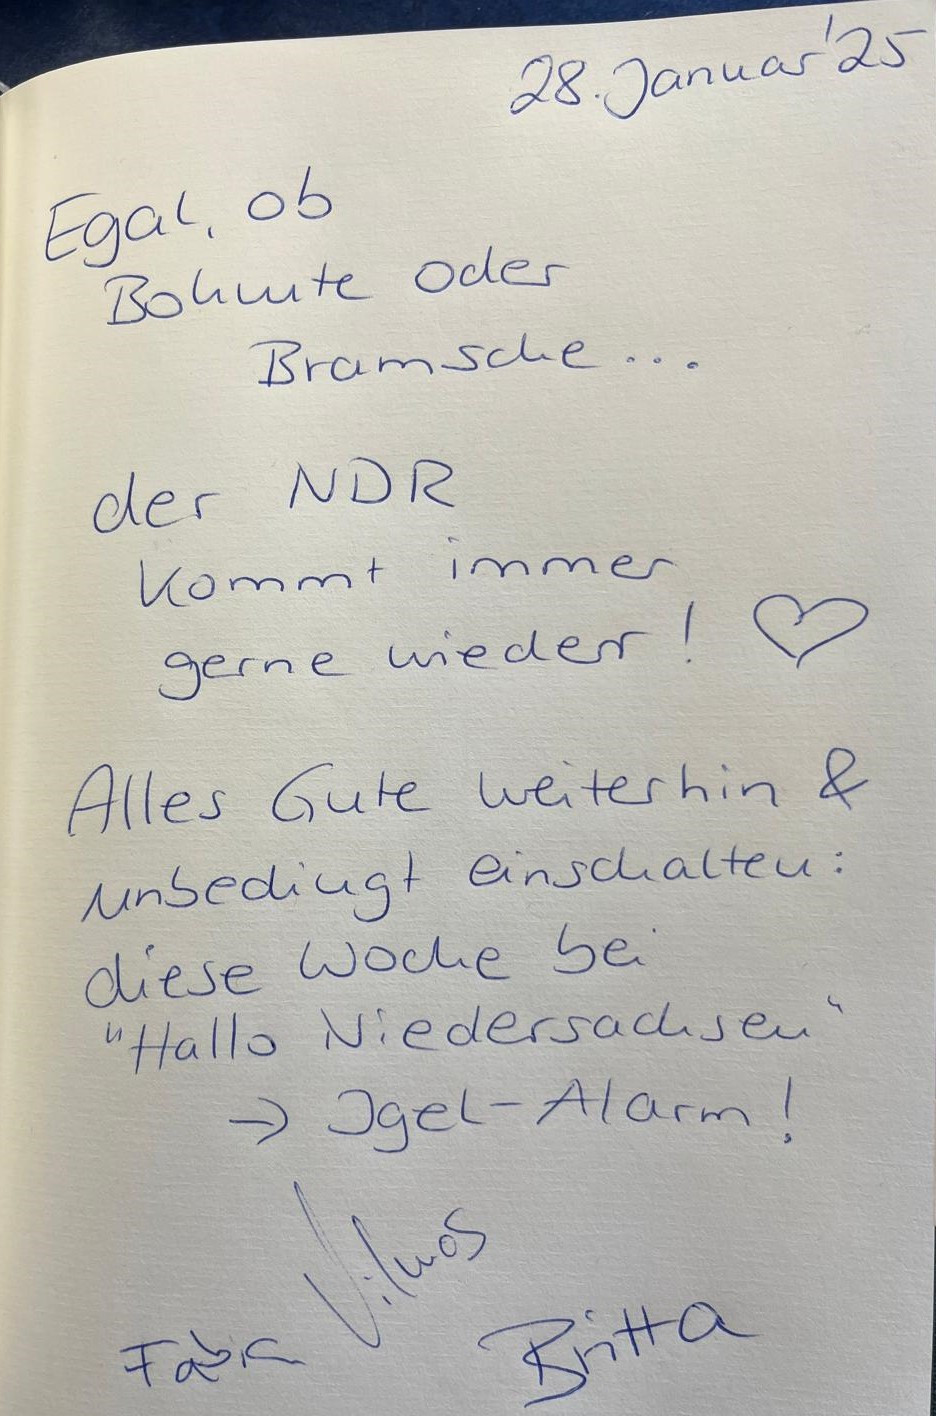 28. Januar '25
Egal, ob
Bohmte oder
Bramsche...
der NDR
kommt immer
gerne wieder! ♡
Alles Gute weiterhin &
unbedingt einschalten:
diese Woche bei
"Hallo Niedersachsen"
→ Igel-Alarm!
Vilmos
Britta